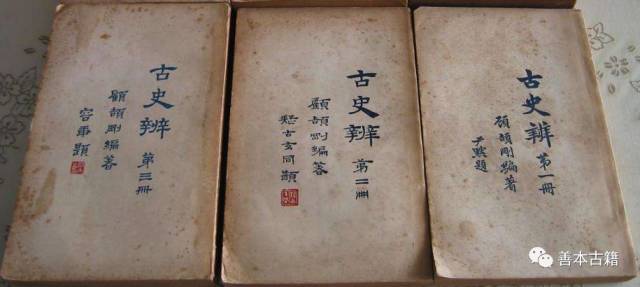 古史辨 第一冊
顧頡剛編著
尹默題
古史辨 第二冊
顧頡剛編著
疑古玄同題
古史辨 第三冊
顧頡剛編著
容庚題
善本古籍